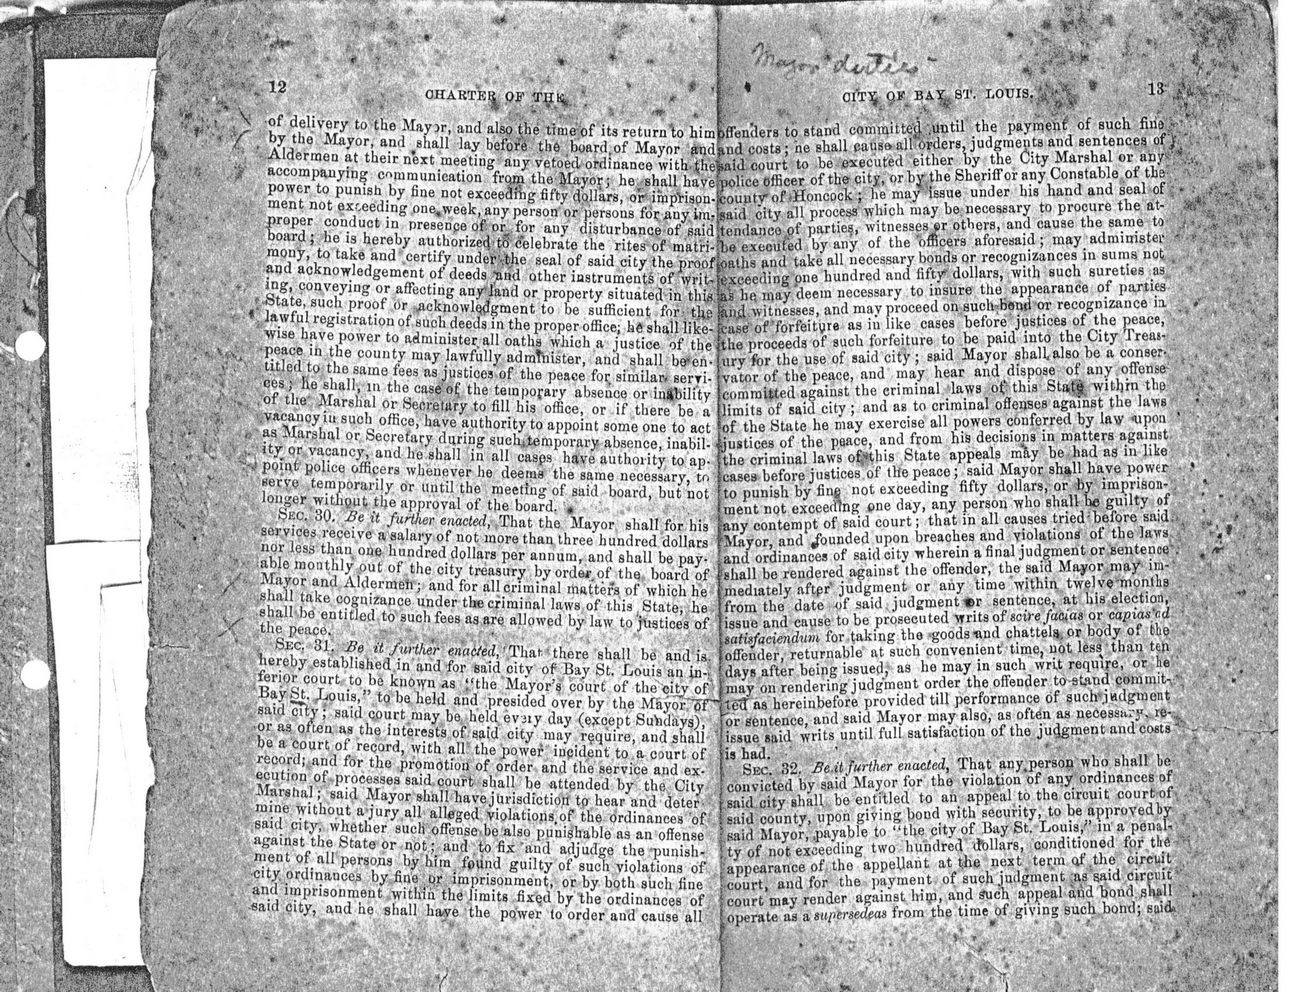 12
CHARTER OF THE
of delivery to the Mayor, and also the time of its return to him
by the Mayor, and shall lay before the board of Mayor and
Aldermen at their next meeting any vetoed ordinance with the
accompanying communication from the Mayor; he shall have
power to punish by fine not exceeding fifty dollars, or imprison-
ment not exceeding one week, any person or persons for any im-
proper conduct in presence of or for any disturbance of said
board; he is hereby authorized to celebrate the rites of matri-
mony, to take and certify under the seal of said city the proof
and acknowledgement of deeds and other instruments of writ-
ing, conveying or affecting any land or property situated in this
State, such proof or acknowledgment to be sufficient for the
lawful registration of such deeds in the proper office; he shall like-
wise have power to administer all oaths which a justice of the
peace in the county may lawfully administer, and shall be en-
titled to the same fees as justices of the peace for similar servi-
ces; he shall, in the case of the temporary absence or inability
of the Marshal or Secretary to fill his office, or if there be a
vacancy in such office, have authority to appoint some one to act
as Marshal or Secretary during such temporary absence, inabil-
ity or vacancy, and he shall in all cases have authority to ap-
point police officers whenever he deems the same necessary, to
serve temporarily or until the meeting of said board, but not
longer without the approval of the board.
SEC. 30. Be it further enacted, That the Mayor shall for his
services receive a salary of not more than three hundred dollars
nor less than one hundred dollars per annum, and shall be pay-
able monthly out of the city treasury by order of the board of
Mayor and Aldermen; and for all criminal matters of which he
shall take cognizance under the criminal laws of this State, he
shall be entitled to such fees as are allowed by law to justices of
the peace.
SEC. 31. Be it further enacted, That there shall be and is
hereby established in and for said city of Bay St. Louis an in-
ferior court to be known as "the Mayor's court of the city of
Bay St. Louis," to be held and presided over by the Mayor of
said city; said court may be held every day (except Sundays),
or as often as the interests of said city may require, and shall
be a court of record, with all the power incident to a court of
record; and for the promotion of order and the service and ex-
ecution of processes said court shall be attended by the City
Marshal; said Mayor shall have jurisdiction to hear and deter
mine without a jury all alleged violations of the ordinances of
said city, whether such offense be also punishable as an offense
against the State or not; and to fix and adjudge the punish-
ment of all persons by him found guilty of such violations of
city ordinances by fine or imprisonment, or by both such fine
and imprisonment within the limits fixed by the ordinances of
said city, and he shall have the power to order and cause all
Mayor duties
CITY OF BAY ST. LOUIS.
13
offenders to stand committed until the payment of such fine
and costs; he shall cause all orders, judgments and sentences of
said court to be executed either by the City Marshal or any
police officer of the city, or by the Sheriff or any Constable of the
county of Honcock; he may issue under his hand and seal of
said city all process which may be necessary to procure the at-
tendance of parties, witnesses or others, and cause the same to
be executed by any of the officers aforesaid; may administer
oaths and take all necessary bonds or recognizances in sums not
exceeding one hundred and fifty dollars, with such sureties as
as he may deem necessary to insure the appearance of parties
and witnesses, and may proceed on such bond or recognizance in
case of forfeiture as in like cases before justices of the peace,
the proceeds of such forfeiture to be paid into the City Treas-
ury for the use of said city; said Mayor shall also be a conser-
vator of the peace, and may hear and dispose of any offense
committed against the criminal laws of this State within the
limits of said city; and as to criminal offenses against the laws
of the State he may exercise all powers conferred by law upon
justices of the peace, and from his decisions in matters against
the criminal laws of this State appeals may be had as in like
cases before justices of the peace; said Mayor shall have power
to punish by fine not exceeding fifty dollars, or by imprison-
ment not exceeding one day, any person who shall be guilty of
any contempt of said court; that in all causes tried before said
Mayor, and founded upon breaches and violations of the laws
and ordinances of said city wherein a final judgment or sentence
shall be rendered against the offender, the said Mayor may im-
mediately after judgment or any time within twelve months
from the date of said judgment or sentence, at his election,
issue and cause to be prosecuted writs of scire facias or capias ad
satisfaciendum for taking the goods and chattels or body of the
offender, returnable at such convenient time, not less than ten
days after being issued, as he may in such writ require, or he
may on rendering judgment order the offender to stand commit-
ted as hereinbefore provided till performance of such judgment
or sentence, and said Mayor may also, as often as necessary, re-
issue said writs until full satisfaction of the judgment and costs
is had.
SEC. 32. Be it further enacted, That any person who shall be
convicted by said Mayor for the violation of any ordinances of
said city shall be entitled to an appeal to the circuit court of
said county, upon giving bond with security, to be approved by
said Mayor, payable to "the city of Bay St. Louis," in a penal-
ty of not exceeding two hundred dollars, conditioned for the
appearance of the appellant at the next term of the circuit
court, and for the payment of such judgment as said circuit
court may render against him, and such appeal and bond shall
operate as a supersedeas from the time of giving such bond; said